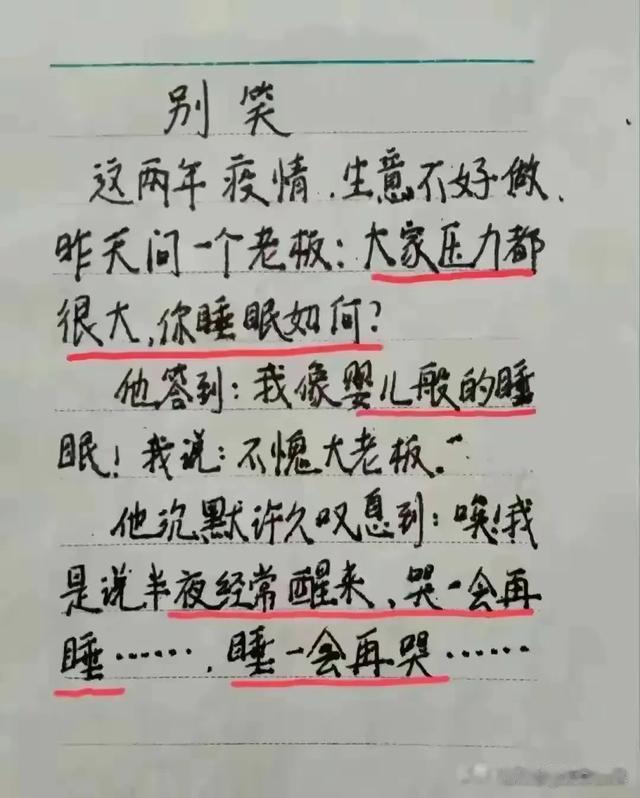 别笑
这两年疫情、生意不好做、
昨天问一个老板:大家压力都
很大,你睡眠如何?
他答到:我像婴儿般的睡
眠!我说:不愧大老板。
他沉默许久叹息到:唉!我
是说半夜经常醒来、哭一会再
睡……,睡一会再哭……